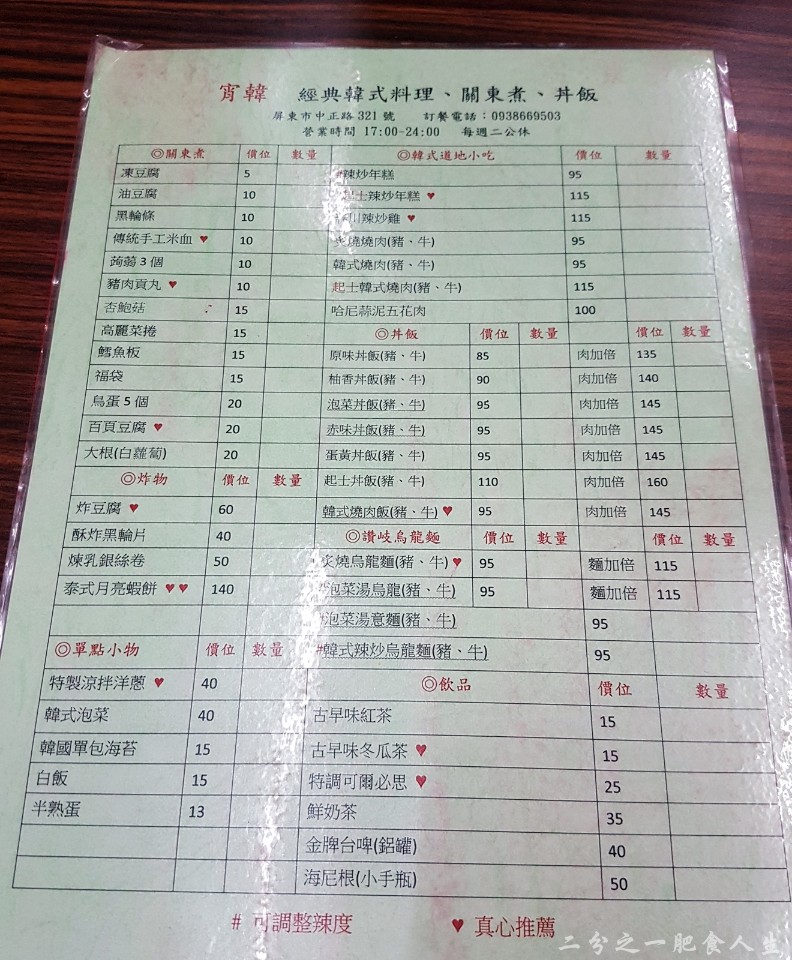 宵韓 經典韓式料理、關東煮、丼飯
屏東市中正路 321 號 訂餐電話：0938669503
營業時間 17:00~24:00 每週二公休
◎關東煮 價位 數量 ◎韓式道地小吃 價位 數量
凍豆腐 5 #辣炒年糕 95
油豆腐 10 起士辣炒年糕 ♥ 115
黑輪條 10 川辣炒雞 ♥ 115
傳統手工米血 ♥ 10 炙燒燒肉(豬、牛) 95
蒟蒻 3 個 10 韓式燒肉(豬、牛) 95
豬肉貢丸 ♥ 10 起士韓式燒肉(豬、牛) 115
杏鮑菇 15 哈尼蒜泥五花肉 100
高麗菜捲 15 ◎丼飯 價位 數量 價位 數量
鱈魚板 15 原味丼飯(豬、牛) 85 肉加倍 135
福袋 15 柚香丼飯(豬、牛) 90 肉加倍 140
鳥蛋 5 個 20 泡菜丼飯(豬、牛) 95 肉加倍 145
百頁豆腐 ♥ 20 赤味丼飯(豬、牛) 95 肉加倍 145
大根(白蘿蔔) 20 蛋黃丼飯(豬、牛) 95 肉加倍 145
◎炸物 價位 數量 起士丼飯(豬、牛) 110 肉加倍 160
炸豆腐 ♥ 60 韓式燒肉飯(豬、牛) ♥ 95 肉加倍 145
酥炸黑輪片 40 ◎讚岐烏龍麵 價位 數量 價位 數量
煉乳銀絲卷 50 炙燒烏龍麵(豬、牛) ♥ 95 麵加倍 115
泰式月亮蝦餅 ♥♥ 140 #泡菜湯烏龍(豬、牛) 95 麵加倍 115
#泡菜湯意麵(豬、牛) 95
◎單點小物 價位 數量 #韓式辣炒烏龍麵(豬、牛) 95
特製涼拌洋蔥 ♥ 40 ◎飲品 價位 數量
韓式泡菜 40 古早味紅茶 15
韓國單包海苔 15 古早味冬瓜茶 ♥ 15
白飯 15 特調可爾必思 ♥ 25
半熟蛋 13 鮮奶茶 35
金牌台啤(鋁罐) 40
海尼根(小手瓶) 50
# 可調整辣度 ♥ 真心推薦
二分之一肥食人生